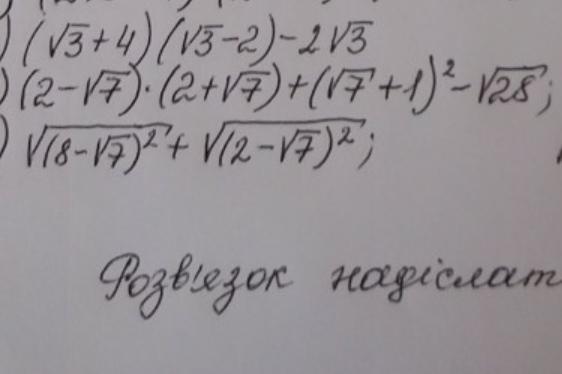 ) (√3+4)(√3-2)-2√3
) (2-√7)·(2+√7)+(√7+1)²-√28;
) √(8-√7)² + √(2-√7)²;
Розв'язок надіслат